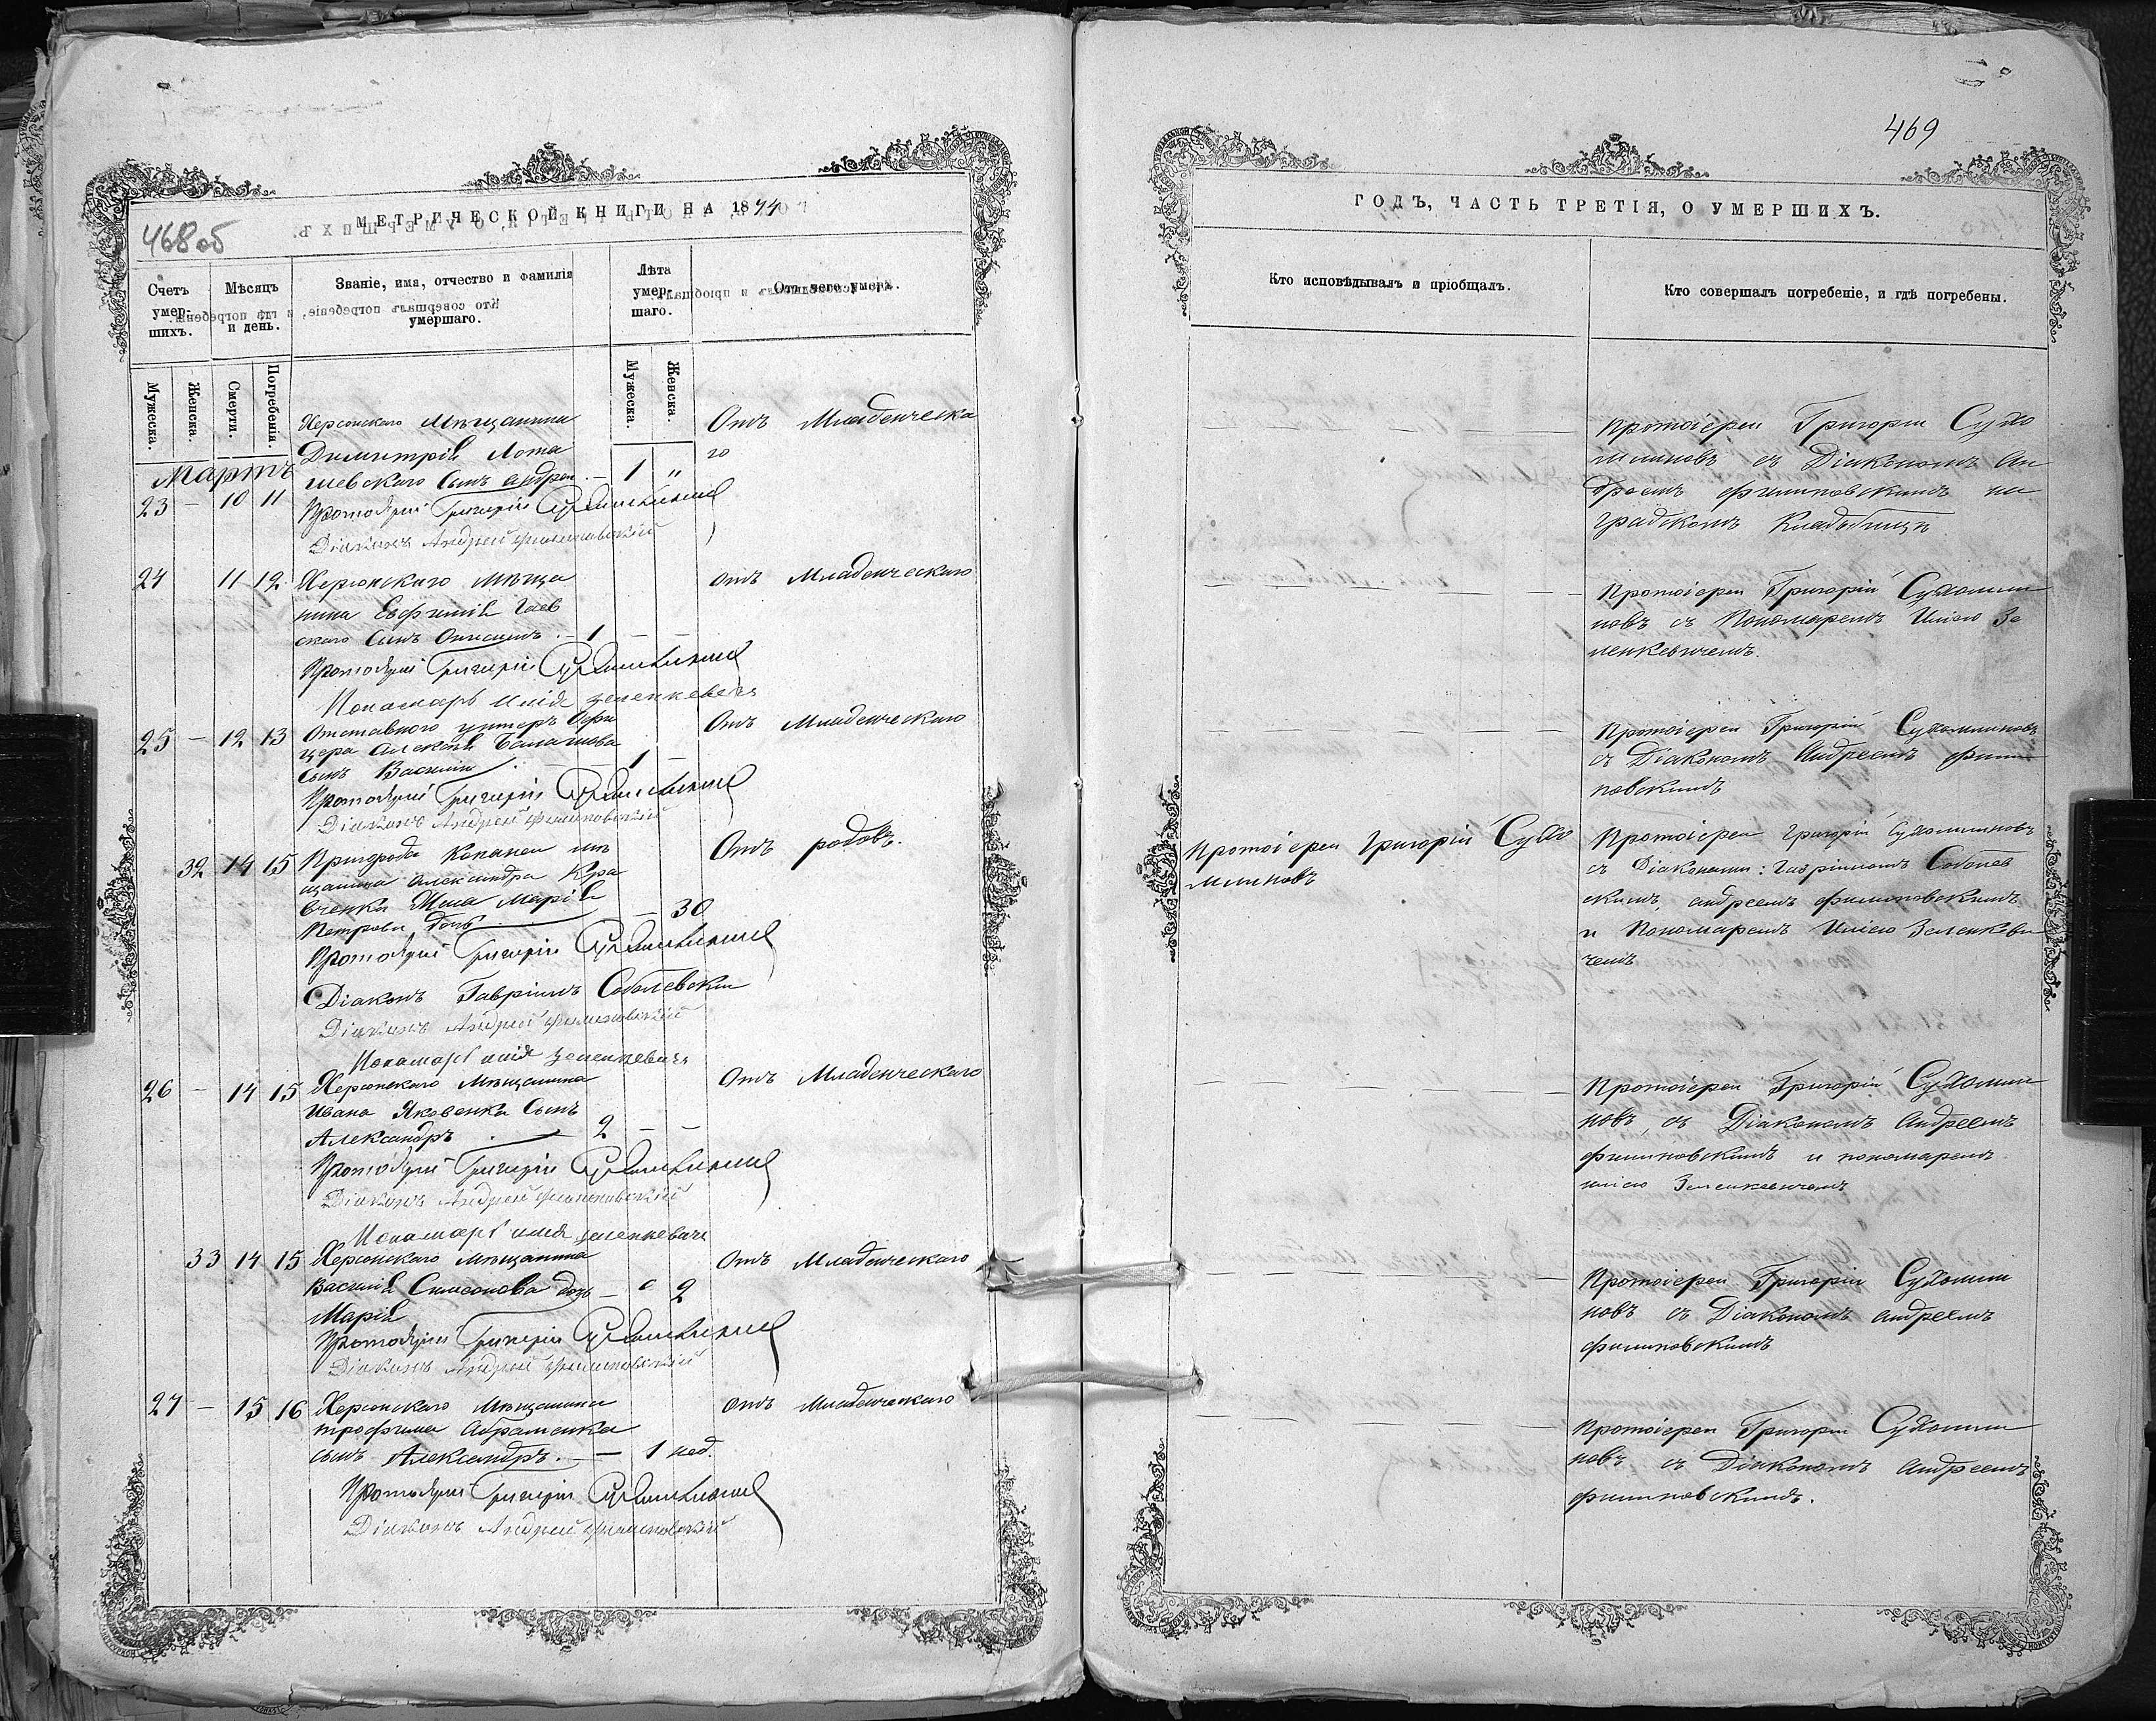 469
468 об
МЕТРИЧЕСКОЙ КНИГИ НА 1874
Счетъ умер- шихъ.
Мѣсяцъ и день.
Званіе, имя, отчество и фамилія умершаго.
Лѣта умер- шаго.
Отъ чего умеръ.
Мужеска.
Женска.
Смерти.
Погребенія.
Мужеска.
Женска.
Мартъ
23 — 10 11
Херсонскаго Мѣщанина
Димитрія Лота
шевскаго Сынъ Андрей — 1 "
Отъ Младенческа
го
Протоіерей Григорій Сухомлиновъ
Діаконъ Андрей Филиповскій
24 11 12
Херсонскаго Мѣща
нина Евфимія Гаев
скаго Сынъ Онисимъ. — 1 — —
Отъ Младенческаго
Протоіерей Григорій Сухомлиновъ
Пономарь Илія Зеленкевичъ
25 — 12 13
Отставного унтеръ Офи
цера Алексѣя Балашова
сынъ Василій — 1 —
Отъ Младенческаго
Протоіерей Григорій Сухомлиновъ
Діаконъ Андрей Филиповскій
32 14 15
Пригорода Копаней мѣ
щанина Александра Кра
вченка Жена Марія
Петрова дочь — 30
Отъ родовъ.
Протоіерей Григорій Сухомлиновъ
Діаконъ Гавріилъ Соболевскій
Діаконъ Андрей Филиповскій
Пономарь Илія Зеленкевичъ
26 — 14 15
Херсонскаго Мѣщанина
Ивана Яковенка Сынъ
Александръ 2 — —
Отъ Младенческаго
Протоіерей Григорій Сухомлиновъ
Діаконъ Андрей Филиповскій
Пономарь Илія Зеленкевичъ
33 14 15
Херсонскаго Мѣщанина
Василія Симонова дочь — 2
Марія
Отъ Младенческаго
Протоіерей Григорій Сухомлиновъ
Діаконъ Андрей Филиповскій
27 — 15 16
Херсонскаго Мѣщанина
Трофима Абраменка
сынъ Александръ. — 1 нед.
Отъ Младенческаго
Протоіерей Григорій Сухомлиновъ
Діаконъ Андрей Филиповскій
ГОДЪ, ЧАСТЬ ТРЕТІЯ, О УМЕРШИХЪ.
Кто исповѣдывалъ и пріобщалъ.
Кто совершалъ погребеніе, и гдѣ погребены.
Протоіерей Григорій Сухо
млиновъ съ Діакономъ Ан
дреемъ Филиповскимъ на
градскомъ Кладбищѣ
Протоіерей Григорій Сухомли
новъ съ Пономаремъ Иліею Зе
ленкевичемъ.
Протоіерей Григорій Сухомлиновъ
съ Діакономъ Андреемъ Фили
повскимъ
Протоіерей Григорій Сухо
млиновъ
Протоіерей Григорій Сухомлиновъ
съ Діаконами: Гавріиломъ Соболев
скимъ, Андреемъ Филиповскимъ
и Пономаремъ Иліею Зеленкеви
чемъ
Протоіерей Григорій Сухомли
новъ, съ Діакономъ Андреемъ
Филиповскимъ и пономаремъ
Иліею Зеленкевичемъ
Протоіерей Григорій Сухомли
новъ съ Діакономъ Андреемъ
Филиповскимъ
Протоіерей Григорій Сухомли
новъ съ Діакономъ Андреемъ
Филиповскимъ.